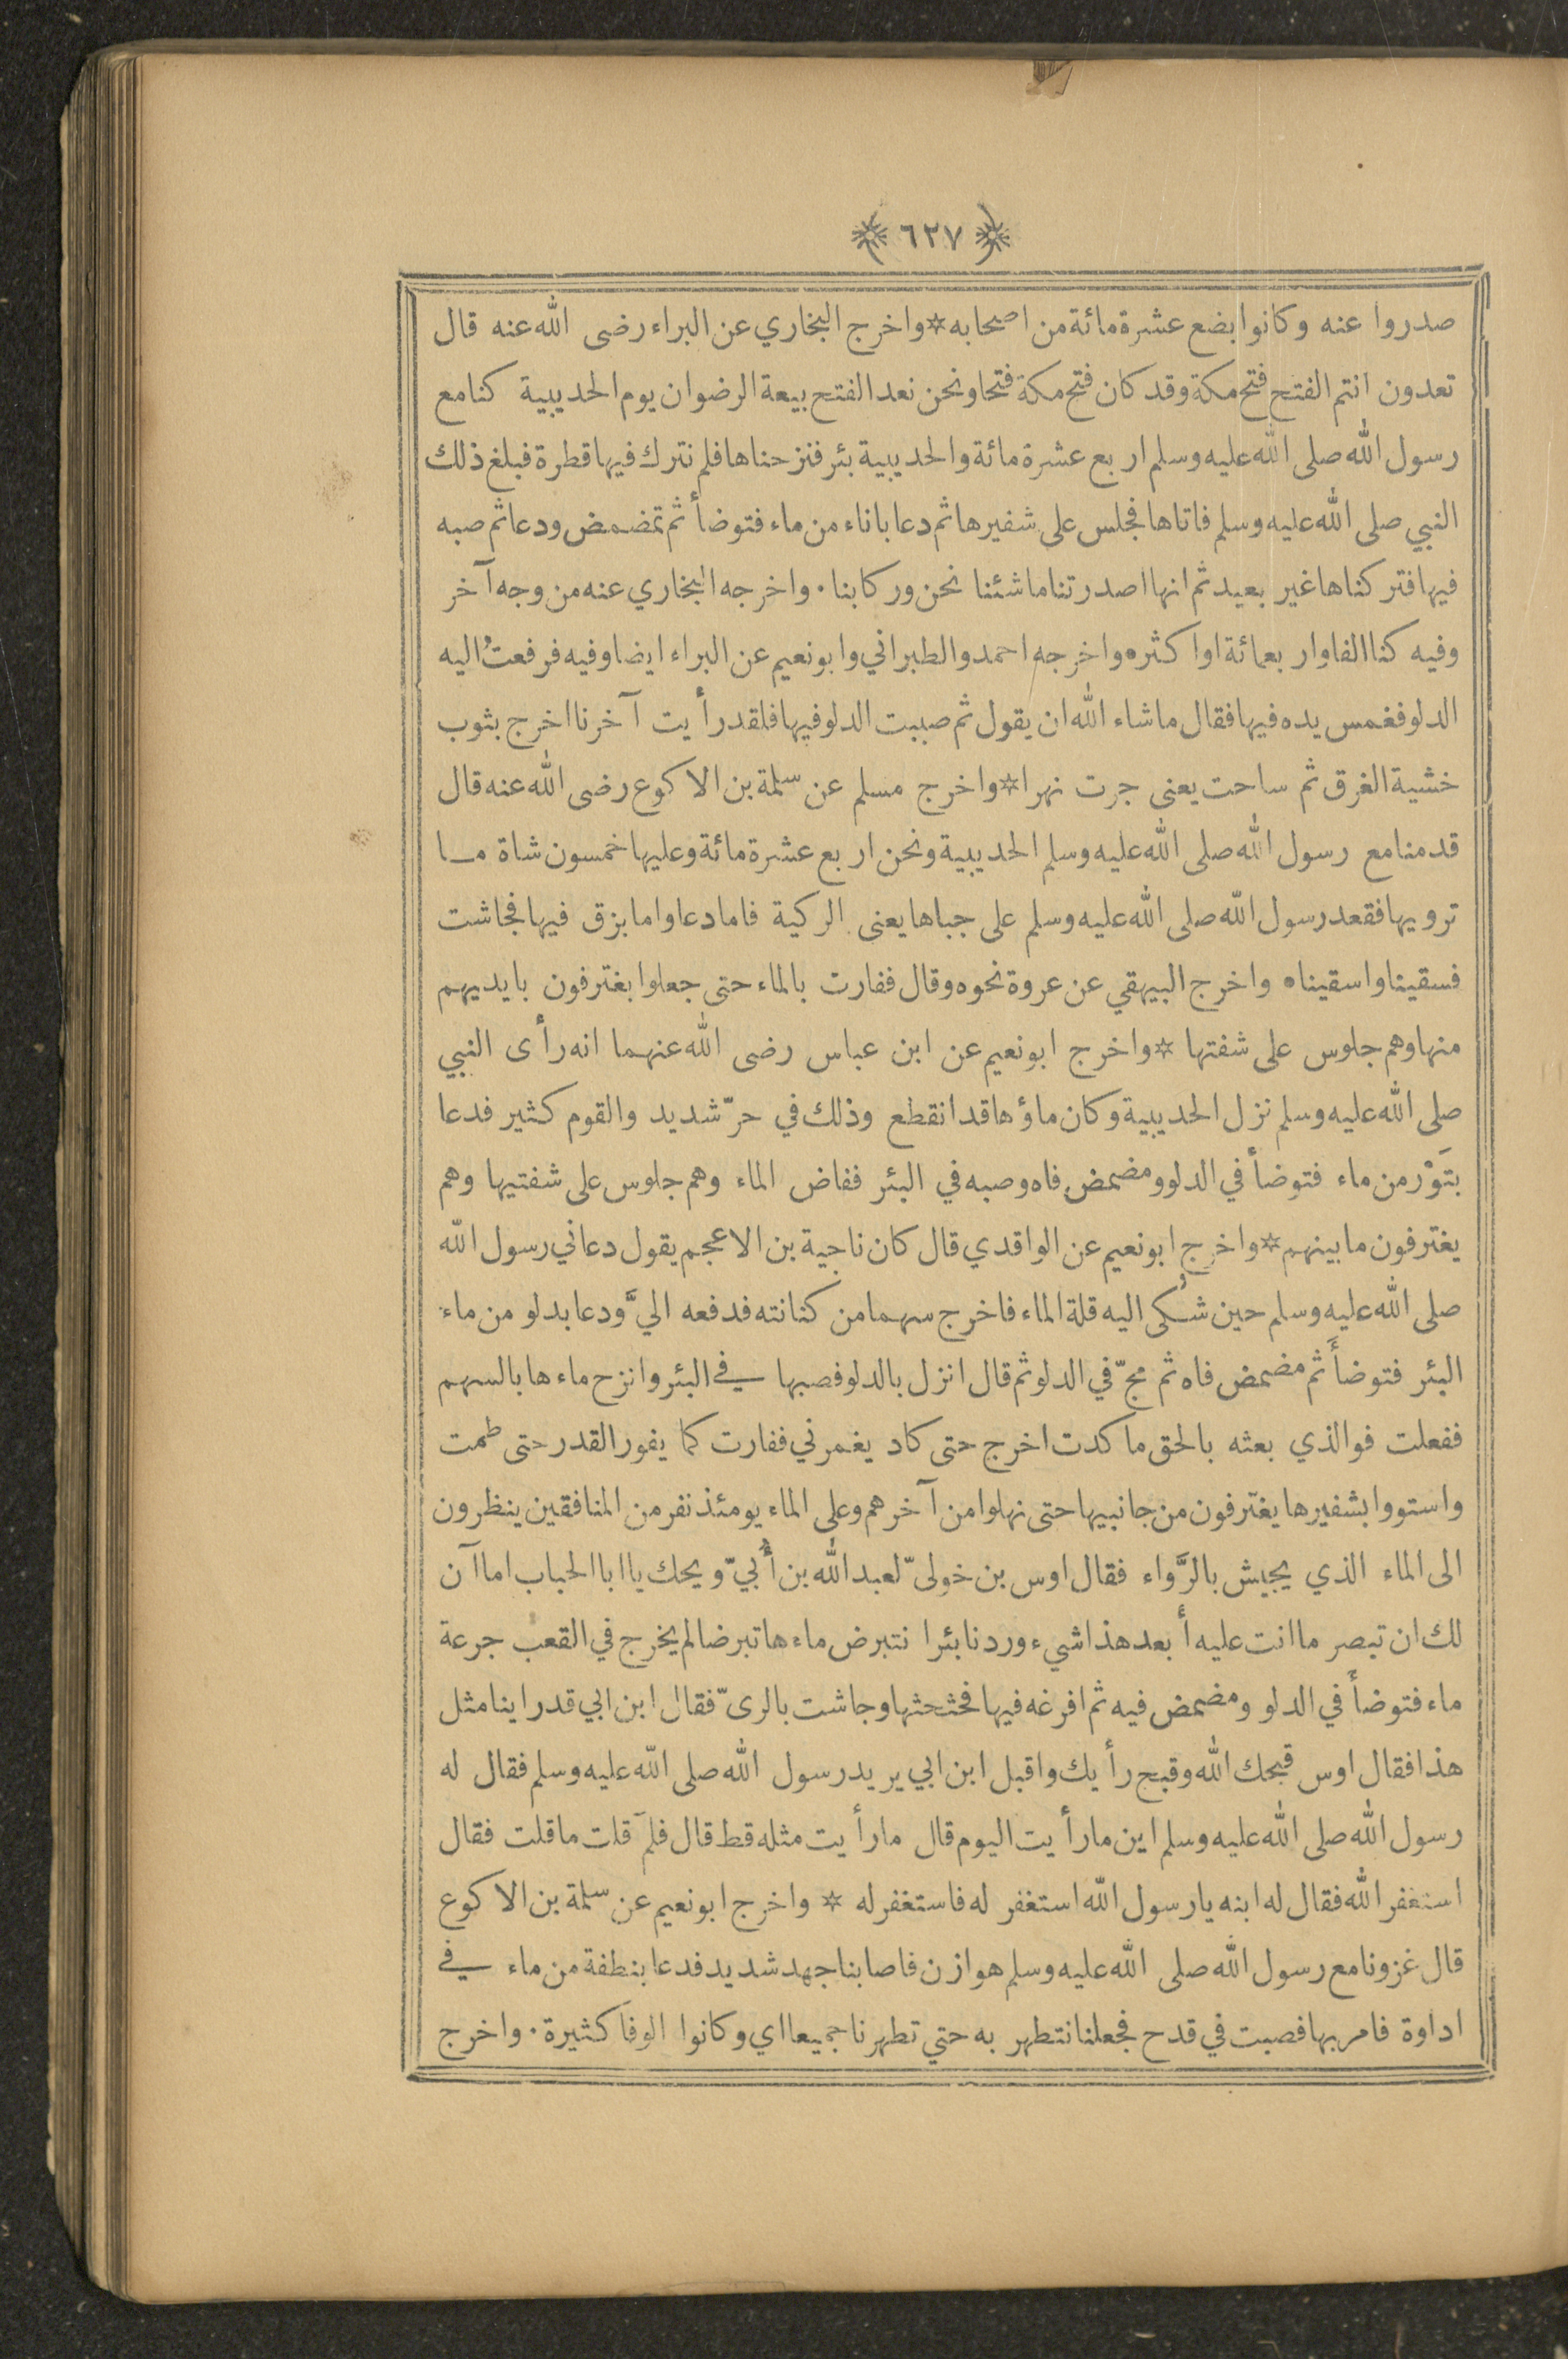 ﴿ ٦٢٧ ﴾
صدروا عنه وكانوا بضع عشرة مائة من اصحابه * واخرج البخاري عن البراء رضى الله عنه قال
تعدون انتم الفتح فتح مكة وقد كان فتح مكة فتحا ونحن نعد الفتح بيعة الرضوان يوم الحديبية كنا مع
رسول الله صلى الله عليه وسلم اربع عشرة مائة والحديبية بئر فنزحناها فلم نترك فيها قطرة فبلغ ذلك
النبي صلى الله عليه وسلم فاتاها فجلس على شفيرها ثم دعا باناء من ماء فتوضأ ثم تمضمض ودعا ثم صبه
فيها فتركناها غير بعيد ثم انها اصدرتنا ما شئنا نحن وركابنا . واخرجه البخاري عنه من وجه آخر
وفيه كنا الفا واربعمائة او اكثر ه واخرجه احمد والطبراني وابو نعيم عن البراء ايضا وفيه فرفعتُ اليه
الدلو فغمس يده فيها فقال ما شاء الله ان يقول ثم صببت الدلو فيها فلقد رأيت آخرنا اخرج بثوب
خشية الغرق ثم ساحت يعنى جرت نهرا * واخرج مسلم عن سلمة بن الاكوع رضى الله عنه قال
قدمنا مع رسول الله صلى الله عليه وسلم الحديبية ونحن اربع عشرة مائة وعليها خمسون شاة ما
ترويها فقعد رسول الله صلى الله عليه وسلم على جباها يعنى الركية فاما دعا واما بزق فيها فجاشت
فسقينا واسقينا ه واخرج البيهقي عن عروة نحوه وقال ففارت بالماء حتى جعلوا يغترفون بايديهم
منها وهم جلوس على شفتها * واخرج ابو نعيم عن ابن عباس رضى الله عنهما انه رأى النبي
صلى الله عليه وسلم نزل الحديبية وكان ماؤها قد انقطع وذلك في حرّ شديد والقوم كثير فدعا
بتَوْر من ماء فتوضأ في الدلو ومضمض فاه وصبه في البئر ففاض الماء وهم جلوس على شفتيها وهم
يغترفون ما بينهم * واخرج ابو نعيم عن الواقدي قال كان ناجية بن الاعجم يقول دعاني رسول الله
صلى الله عليه وسلم حين شُكى اليه قلة الماء فاخرج سهما من كنانته فدفعه اليَّ ودعا بدلو من ماء
البئر فتوضأ ثم مضمض فاه ثم مجّ في الدلو ثم قال انزل بالدلو فصبها في البئر وانزح ماءها بالسهم
ففعلت فوالذي بعثه بالحق ما كدت اخرج حتى كاد يغمرني ففارت كما يفور القدر حتى طمت
واستووا بشفيرها يغترفون من جانبيها حتى نهلوا من آخرهم وعلى الماء يومئذ نفر من المنافقين ينظرون
الى الماء الذي يجيش بالرَّواء فقال اوس بن خولىّ لعبد الله بن أُبيّ ويحك يا ابا الحباب اما آن
لك ان تبصر ما انت عليه أبعد هذا شيء وردنا بئرا نتبرض ماءها تبرضا لم يخرج في القعب جرعة
ماء فتوضأ في الدلو ومضمض فيه ثم افرغه فيها فحثحثها وجاشت بالرىّ فقال ابن ابي قد راينا مثل
هذا فقال اوس قبحك الله وقبح رأيك واقبل ابن ابي يريد رسول الله صلى الله عليه وسلم فقال له
رسول الله صلى الله عليه وسلم اين ما رأيت اليوم قال ما رأيت مثله قط قال فلمَ قلت ما قلت فقال
استغفر الله فقال له ابنه يا رسول الله استغفر له فاستغفر له * واخرج ابو نعيم عن سلمة بن الاكوع
قال غزونا مع رسول الله صلى الله عليه وسلم هوازن فاصابنا جهد شديد فدعا بنطفة من ماء في
اداوة فامر بها فصبت في قدح فجعلنا نتطهر به حتي تطهرنا جميعا اي وكانوا الوفا كثيرة . واخرج